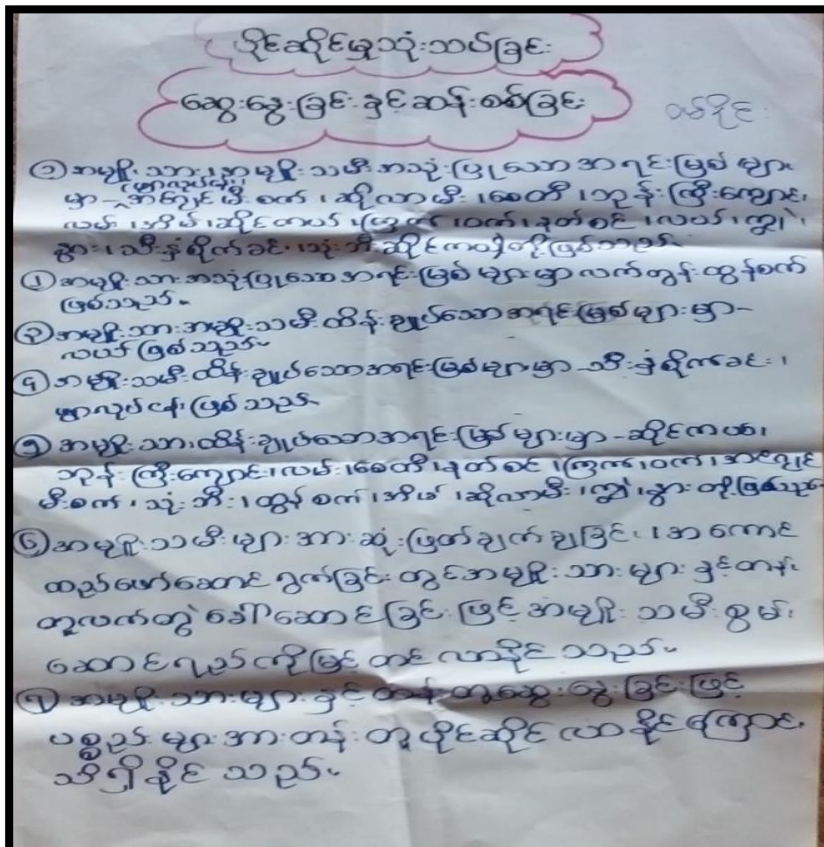 ပိုင်ဆိုင်မှုသုံးသပ်ခြင်း
ဆွေးနွေးခြင်းနှင့်ဆန်းစစ်ခြင်း
၁ အမျိုးသား၊ အမျိုးသမီးအသုံးပြုသောအရင်းမြစ်များ
မှာ-အင်ဂျင်မီးစက်၊ ဆိုလာမီး၊ စေတီ၊ ဘုန်းကြီးကျောင်း၊
လမ်း၊ အိမ်၊ ဆိုင်ကယ်၊ ကြက်၊ ဝက်၊ နတ်စင်၊ လယ်၊ ကျွဲ၊
နွား၊ သီးနှံစိုက်ခင်း၊ သုံးဘီးဆိုင်ကယ်တို့ဖြစ်သည်
၂ အမျိုးသားအသုံးပြုသောအရင်းမြစ်များမှာ လက်တွန်းထွန်စက်
ဖြစ်သည်။
၃ အမျိုးသားအမျိုးသမီးထိန်းချုပ်သောအရင်းမြစ်များမှာ-
လယ်ဖြစ်သည်။
၄ အမျိုးသမီးထိန်းချုပ်သောအရင်းမြစ်များမှာ-သီးနှံစိုက်ခင်း၊
ဖြစ်သည်
၅ အမျိုးသားထိန်းချုပ်သောအရင်းမြစ်များမှာ-ဆိုင်ကယ်၊
ဘုန်းကြီးကျောင်း၊ လမ်း၊ စေတီ၊ နတ်စင်၊ ကြက်၊ ဝက်၊ အင်ဂျင်
မီးစက်၊ သုံးဘီး၊ ထွန်စက်၊ အိမ်၊ ဆိုလာမီး၊ ကျွဲ၊ နွားတို့ဖြစ်သည်
၆ အမျိုးသမီးများအားဆုံးဖြတ်ချက်ချခြင်း၊ အကောင်
ထည်ဖော်ဆောင်ရွက်ခြင်းတွင်အမျိုးသားများနှင့်တန်း
တူလက်တွဲခေါ်ဆောင်ခြင်းဖြင့်အမျိုးသမီးစွမ်း
ဆောင်ရည်ကိုမြင့်တင်လာနိုင်သည်။
၇ အမျိုးသားများနှင့်တန်းတူဆွေးနွေးခြင်းဖြင့်
ပစ္စည်းများအားတန်းတူပိုင်ဆိုင်လာနိုင်ကြောင်း
သိရှိနိုင်သည်။